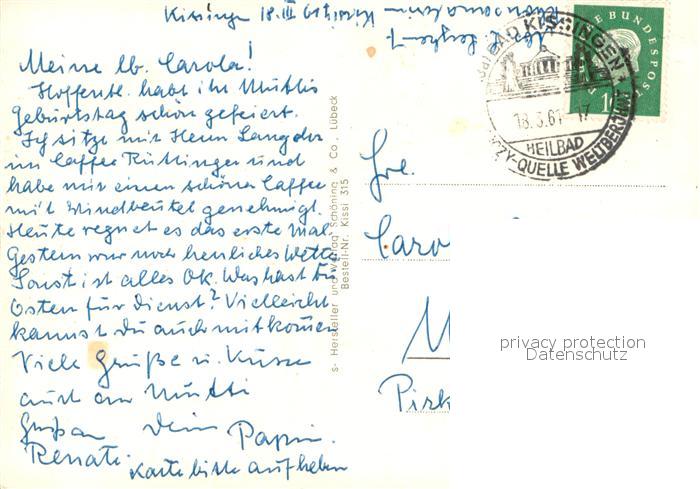 Kissingen 18. III 61
Meine lb. Carola!
Hoffentl. habt ihr Muttis
Geburtstag schön gefeiert.
Ich sitze mit Herrn Langdor
im Caffee Kissingen und
habe mir einen schönen Caffee
mit Windbeutel genehmigt.
Heute regnet es das erste Mal.
Gestern war noch herrliches Wetter
Sonst ist alles OK. Was hast Du
Ostern für Dienst? Vielleicht
kannst Du auch mitkommen
Viele Grüße u. Küsse
auch an Mutti
Dein Papi.
Renate.
Karte bitte aufheben
s- Hersteller und Verlag Schöning & Co., Lübeck
Bestell-Nr. Kissi 315
BAD KISSINGEN
18.3.61 - 17
HEILBAD
-QUELLE WELTBERÜHMT
EBUNDESPOST
10
Frl.
Caro
M
Pirk
privacy protection
Datenschutz